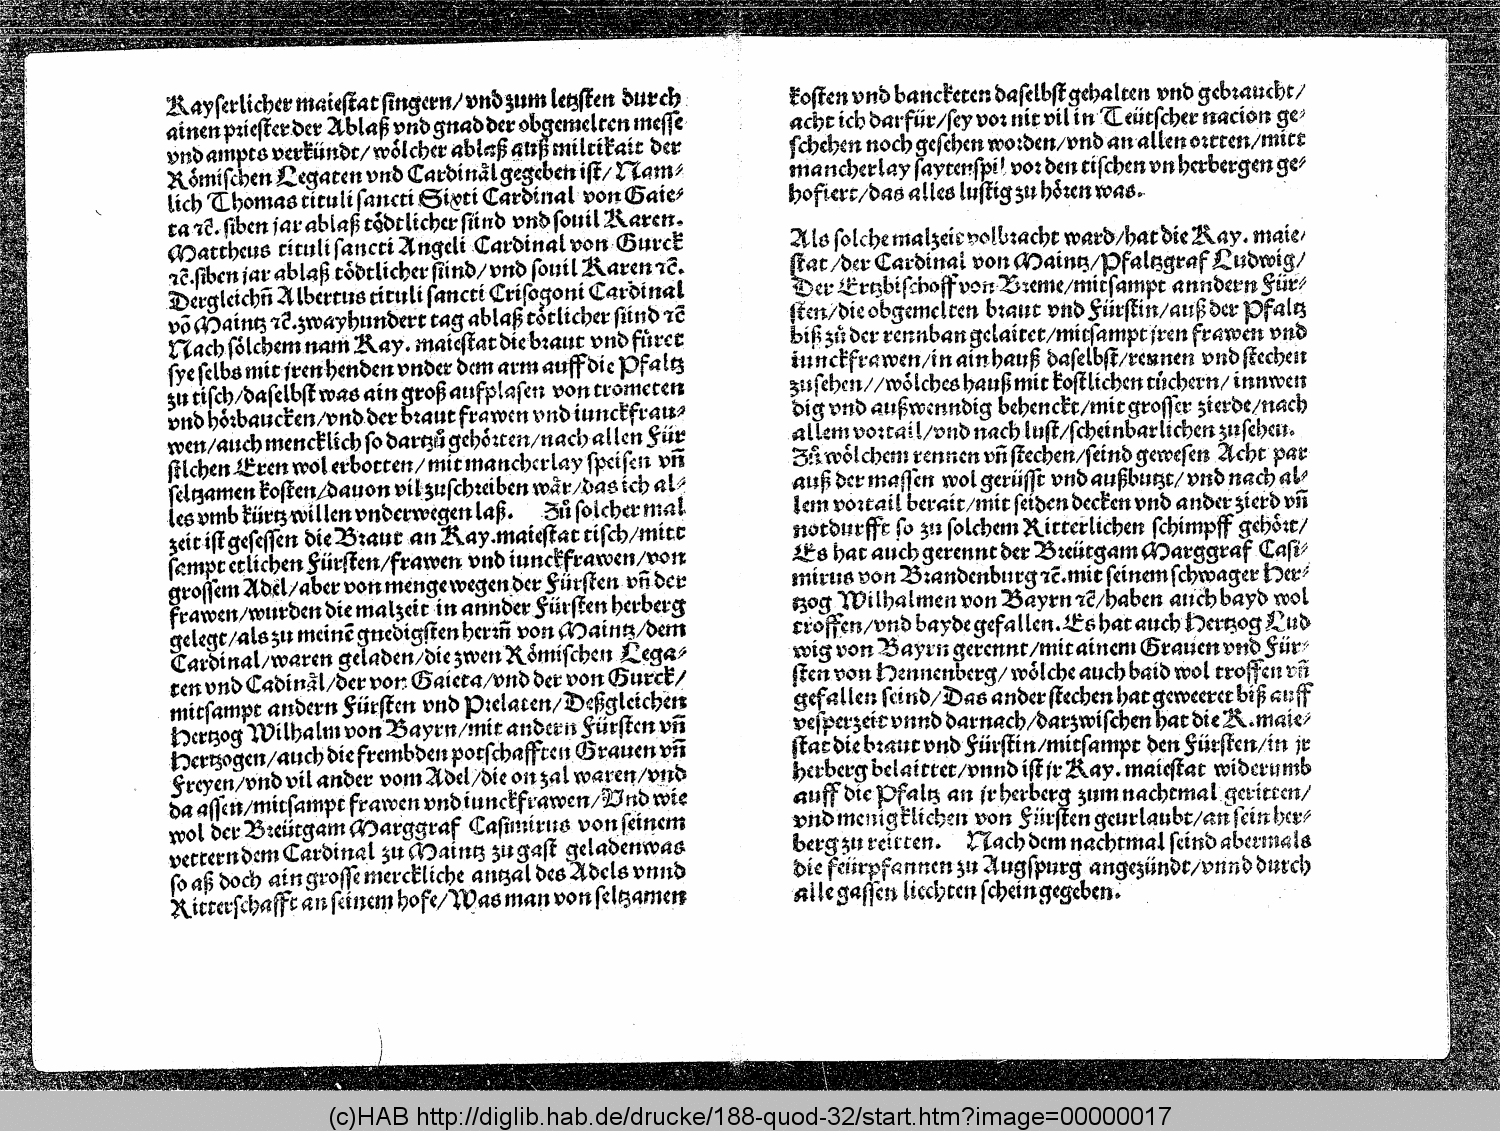 Kayserlicher maiestat singern/vnd zum letzsten durch
ainen priester der Ablaß vnd gnad der obgemelten messe
vnd ampts verkündt/wölcher ablaß auß miltikait der
Römischen Legaten vnd Cardinål gegeben ist/Nam⸗
lich Thomas tituli sancti Sixti Cardinal von Gaie⸗
ta ꝛc̃. siben jar ablaß tödtlicher sünd vnd souil Karen.
Mattheus tituli sancti Angeli Cardinal von Gurck
ꝛc̃.siben jar ablaß tödtlicher sünd/vnd souil Karen ꝛc̃.
Dergleichñ Albertus tituli sancti Crisogoni Cardinal
võ Maintz ꝛc̃.zwayhundert tag ablaß tötlicher sünd ꝛc̃
Nach sölchem nam Kay. maiestat die braut vnd füret
sye selbs mit jren henden vnder dem arm auff die Pfaltz
zu tisch/daselbst was ain groß aufplasen von trometen
vnd hörbaucken/vnd der braut frawen vnd iunckfrau⸗
wen/auch mencklich so dartzů gehörten/nach allen Für
stlchen Eren wol erbotten/mit mancherlay speisen vñ
seltzamen kosten/dauon vil zuschreiben wår/das ich al⸗
les vmb kürtz willen vnderwegen laß. Zů solcher mal
zeit ist gesessen die Braut an Kay.maiestat tisch/mitt
sempt etlichen Fürsten/frawen vnd iunckfrawen/von
grossem Adel/aber von menge wegen der Fürsten vñ der
frawen/wurden die malzeit in annder Fürsten herberg
gelegt/als zu meinē gnedigsten herrñ von Maintz/dem
Cardinal/waren geladen/die zwen Römischen Lega⸗
ten vnd Cadinål/der von Gaieta/vnd der von Gurck/
mitsampt andern Fürsten vnd Prelaten/Deßgleichen
Hertzog Wilhalm von Bayrn/mit andern Fürsten vñ
Hertzogen/auch die frembden potschafften Grauen vñ
Freyen/vnd vil ander vom Adel/die on zal waren/vnd
da assen/mitsampt frawen vnd iunckfrawen/Vnd wie
wol der Breütgam Marggraf Casimirus von seinem
vettern dem Cardinal zu Maintz zu gast geladen was
so aß doch ain grosse merckliche antzal des Adels vnnd
Ritterschafft an seinem hofe/Was man von seltzamen
kosten vnd bancketen daselbst gehalten vnd gebraucht/
acht ich darfür/sey vor nit vil in Teütscher nacion ge⸗
schehen noch gesehen worden/vnd an allen ortten/mitt
mancherlay saytenspil vor den tischen vn herbergen ge⸗
hofiert/das alles lustig zu hören was.
Als solche malzeit volbracht ward/hat die Kay. maie⸗
stat/der Cardinal von Maintz/Pfaltzgraf Ludwig/
Der Ertzbischoff von Breme/mitsampt anndern Für⸗
sten/die obgemelten braut vnd Fürstin/auß der Pfaltz
biß zů der rennban gelaitet/mitsampt jren frawen vnd
iunckfrawen/in ain hauß daselbst/rennen vnd stechen
zusehen//wölches hauß mit kostlichen tüchern/innwen
dig vnd außwenndig behenckt/mit grosser zierde/nach
allem vortail/vnd nach lust/scheinbarlichen zusehen.
Zů wölchem rennen vñ stechen/seind gewesen Acht par
auß der massen wol gerüsst vnd außbutzt/vnd nach al⸗
lem vortail berait/mit seiden decken vnd ander zierd vñ
notdurfft so zu solchem Ritterlichen schimpff gehört/
Es hat auch gerennt der Breütgam Marggraf Casi⸗
mirus von Brandenburg ꝛc̃.mit seinem schwager Her⸗
tzog Wilhalmen von Bayrn ꝛc̃/haben auch bayd wol
troffen/vnd bayde gefallen.Es hat auch Hertzog Lud
wig von Bayrn gerennt/mit ainem Grauen vnd Für⸗
sten von Hennenberg/wölche auch baid wol troffen vñ
gefallen seind/Das ander stechen hat geweeret biß auff
vesperzeit vnnd darnach/darzwischen hat die K.maie⸗
stat die braut vnd Fürstin/mitsampt den Fürsten/in jr
herberg belaittet/vnnd ist jr Kay. maiestat widerumb
auff die Pfaltz an jr herberg zum nachtmal geritten/
vnd menigklichen von Fürsten geurlaubt/an sein her⸗
berg zu reitten. Nach dem nachtmal seind abermals
die feürpfannen zu Augspurg angezündt/vnnd durch
alle gassen liechten schein gegeben.
(c)HAB http://diglib.hab.de/drucke/188-quod-32/start.htm?image=00000017